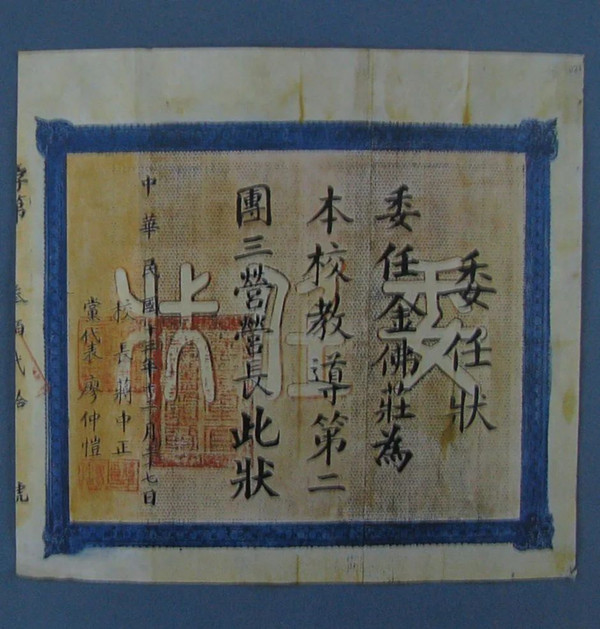 委任狀
委任狀
委任金佛莊為
本校教導第二
團三營營長此狀
中華民國十三年十二月 七日
校長蔣中正
黨代表廖仲愷
字第 叁百弍拾 號